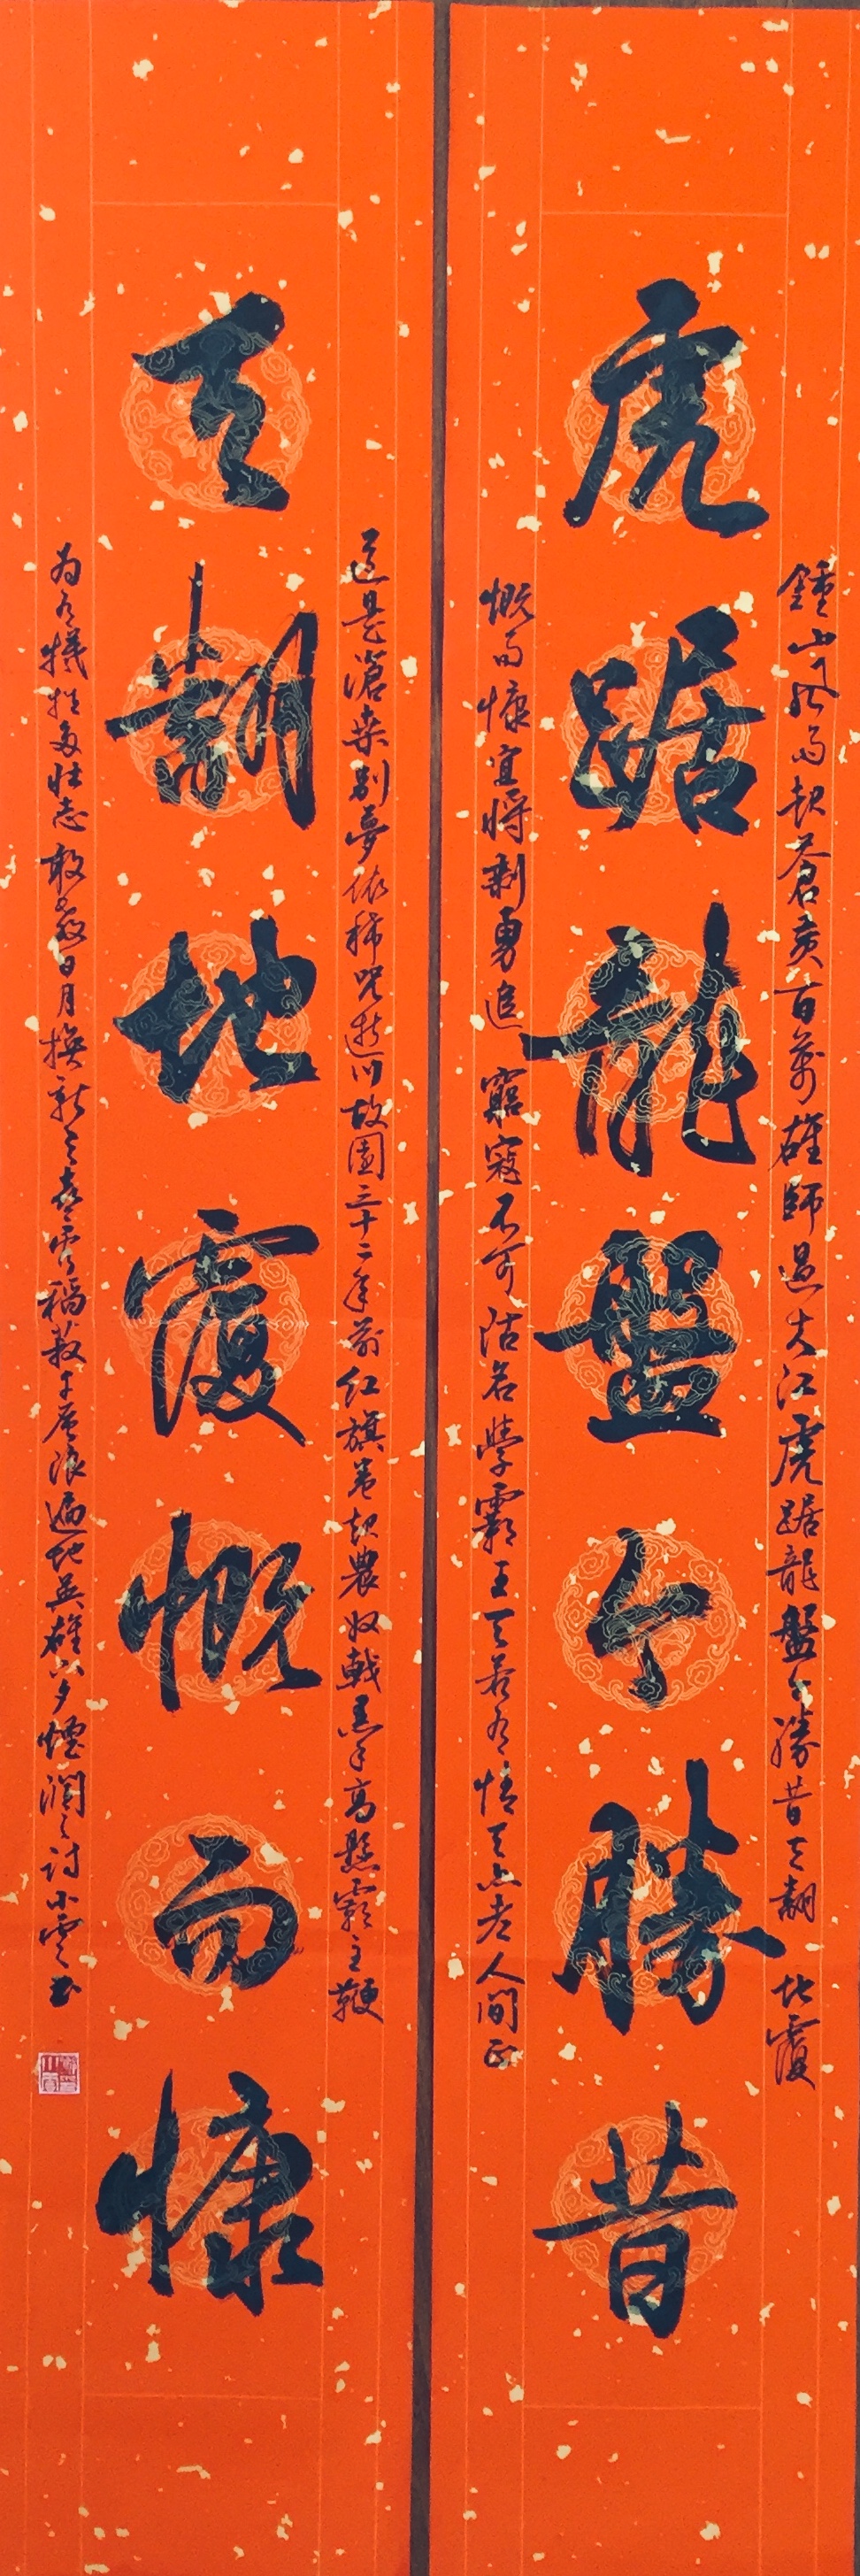 鍾山風雨起蒼黃百萬雄師過大江虎踞龍盤今勝昔天翻地覆
虎踞龍盤今勝昔
慨而慷宜將剩勇追窮寇不可沽名學霸王天若有情天亦老人間正
道是滄桑別夢依稀咒逝川故園三十二年前紅旗卷起農奴戟黑手高懸霸主鞭
天翻地覆慨而慷
為有犧牲多壯志敢教日月換新天喜看稻菽千層浪遍地英雄下夕煙潤之詩小雲書